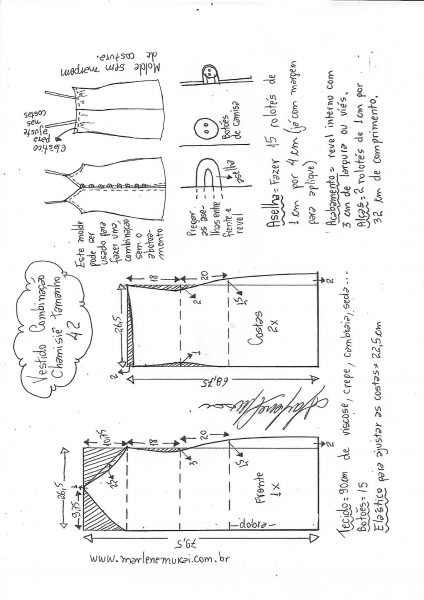 Vestido Combinação
Chamisiê Tamanho
42
Este molde
pode ser
usado para
fazer uma
combinação
sem o
abotoamento
Elástico
para
ajuste
nas
costas
Molde sem margem
de costura.
Pregar
as aselhas entre
frente e
revel
aselha
Botões
de camisa
Aselha = Fazer 15 rolotês de
1 cm por 4 cm (já com margem
para aplique)
Acabamento = revel interno com
3 cm de largura ou viés.
Alças = 2 rolotês de 1cm por
32 cm de comprimento.
26,5
2
18
20
2
1
1,5
Costas
2x
68,75
2
26,5
9,75
3
10,75
22
18
20
3
1,5
Frente
1x
dobra
79,5
2
www.marlenemukai.com.br
Tecido = 90cm de viscose, crepe, cambraia, seda...
Botões = 15
Elástico para ajustar as costas = 22,5cm